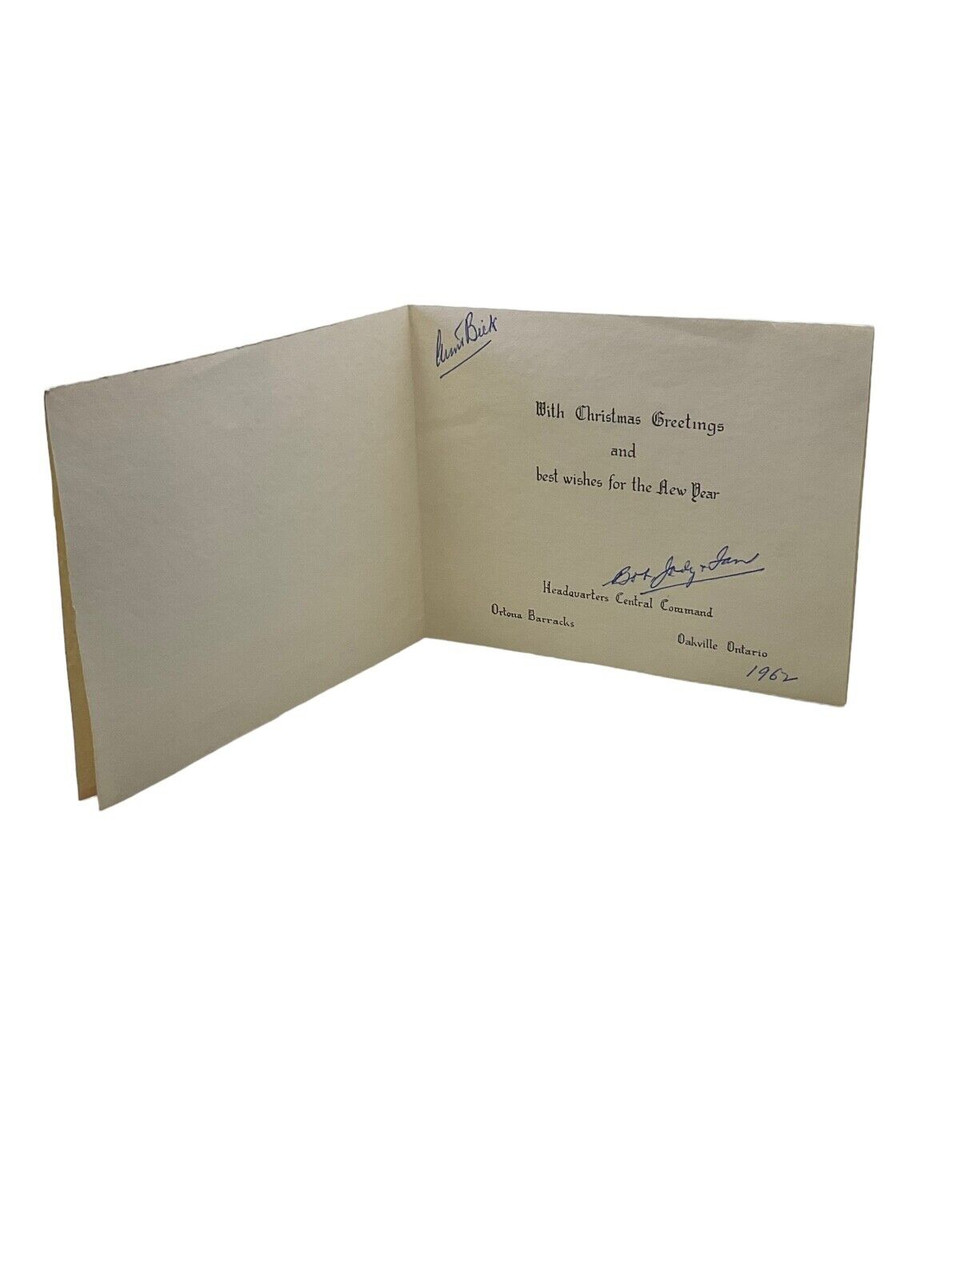 Aunt Beek
With Christmas Greetings
and
best wishes for the New Year
Bob, Jody + Ian
Headquarters Central Command
Ortona Barracks
Oakville Ontario
1962